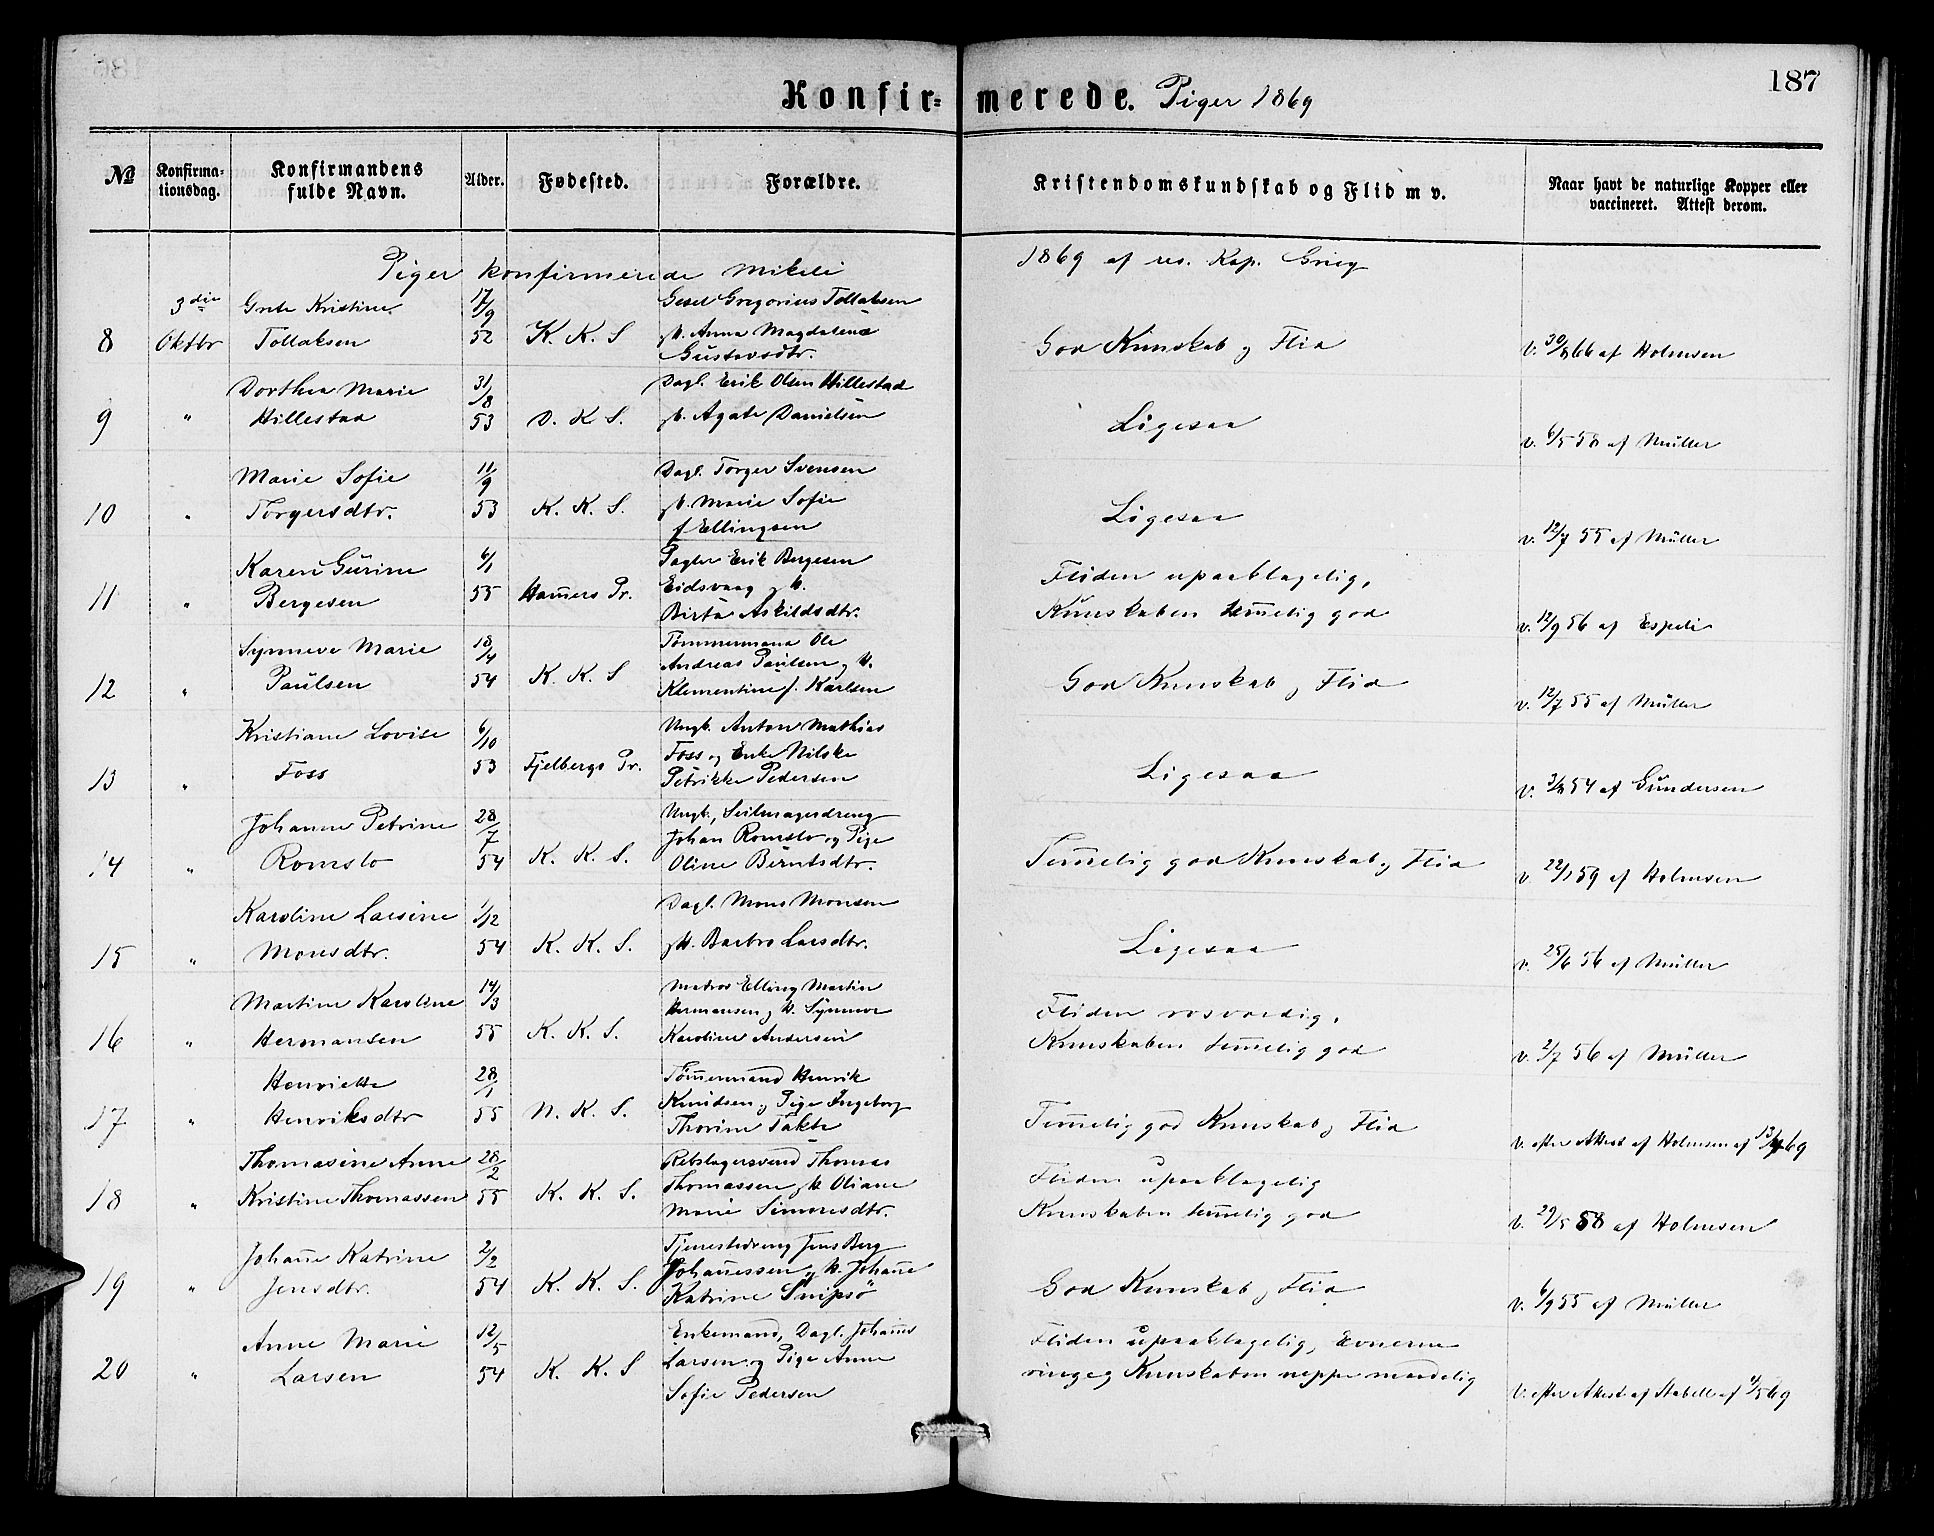 187
Konfir= merede. Piger 1869
No
Konfirma-
tionsdag.
Konfirmandens
fulde Navn.
Alder.
Fødested.
Forældre.
Kristendomskundskab og Flid m v.
Naar havt de naturlige Kopper eller
vaccineret. Attest derom.
Piger konfirmerede Mikeli 1869 af res. Kap. Grieg
3die Grete Kristine 17/9 Gesel Gregorius Tollaksen
8 Oktbr Tollaksen 52 K. K. S og H. Anna Magdalena God Kunskab og Flid V. 30/8 66 af Holmsen
Gustavsdtr.
Dorthea Marie 31/8 Dagl. Erik Olsen Hillestad
9 " Hillestad 53 D. K S. og H. Agate Danielsen Ligesaa V. 6/5 58 af Müller
Marie Sofie 11/9 Dagl. Torger Svensen
10 " Torgersdtr. 53 K. K. S. og H. Marie Sofie Ligesaa V. 12/7 55 af Müller
f Ellingsen
Karen Gurine 6/1 Pagler Erik Bergesen Fliden upaaklagelig,
11 " Bergesen 55 Hamers Pr. Eidsvaag og H. Kunskaben temelig god V. 12/9 56 af Espeli
Birta Askildsdtr.
Synneve Marie 18/4 Tømmermand Ole
12 " Paulsen 54 K. K. S Andreas Paulsen og H. God Kunskab og Flid V. 12/7 55 af Müller
Klementine f. Karlsen
Kristiane Lovise 6/10 Ungk. Anton Mathias
13 " Foss 53 Fjelbergs Pr. Foss og Enke Nilske Ligesaa V. 3/8 54 af Gundersen
Petrikke Pedersen
Johanne Petrine 28/7 Ungk., Seilmagerdreng
14 " Romslo 54 K. K. S. Johan Romslo og Pige Temelig god Kunskab og Flid V. 22/1 59 af Holmsen
Oline Berntsdtr.
Karoline Larsine 1/12 Dagl. Mons Monsen
15 " Monsdtr. 54 K. K. S. og H. Barbro Larsdtr. Ligesaa V. 25/6 56 af Müller
Martine Karoline 14/3 Matros Elling Martin Fliden rosværdig,
16 " Hermansen 55 K. K. S. Hermansen og H. Synneve Kunskaben temelig god V. 2/7 56 af Müller
Karoline Andersen
Henriette 28/1 Tømermand Henrik
17 " Henriksdtr 55 N. K. S. Knudsen og Pige Ingeborg Temelig god Kunskab og Flid V. efter Attest af Holmsen af 13/4 69
Thorine Takle
Thomasine Anne 28/2 Rebslagersvend Thomas Fliden upaaklagelig
18 " Kristine Thomassen 55 K. K. S. Thomassen og H. Oliane Kunskaben temelig god V. 29/5 58 af Holmsen
Marie Simonsdtr.
Johane Katrine 2/2 Tjenestedreng Jens Berg
19 " Jensdtr. 54 K. K. S. Johanessen og H. Johane God Kunskab og Flid V. 6/9 55 af Müller
Katrine Snipsö
Anne Marie 12/5 Enkemand, Dagl. Johanes Fliden upaaklagelig, Evnerne
20 " Larsen 54 K. K. S Larsen og Pige Anne ringe og Kunskaben neppe maadelig V. efter Attest af Stabell af 4/5 69
Sofie Pedersen